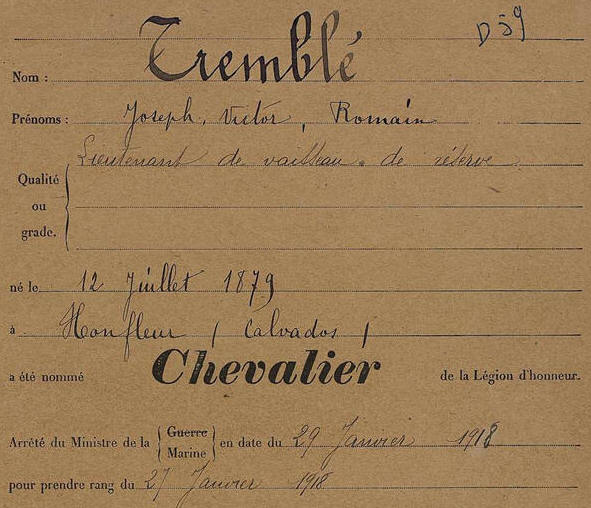 D 59
Nom : Tremblé
Prénoms : Joseph, Victor, Romain
Lieutenant de vaisseau de réserve
Qualité
ou
grade.
né le 12 Juillet 1879
à Honfleur (Calvados)
a été nommé Chevalier de la Légion d'honneur.
Arrêté du Ministre de la { Guerre Marine } en date du 29 Janvier 1918
pour prendre rang du 27 Janvier 1918